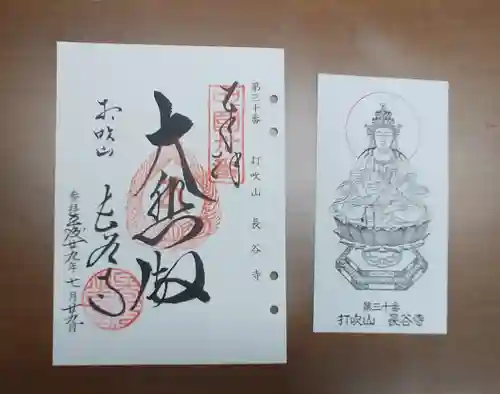 第三十番　打吹山　長谷寺
奉拝
大悲殿
打吹山
長谷寺
参拝平成廿九年七月廿九日
第三十番
打吹山　長谷寺